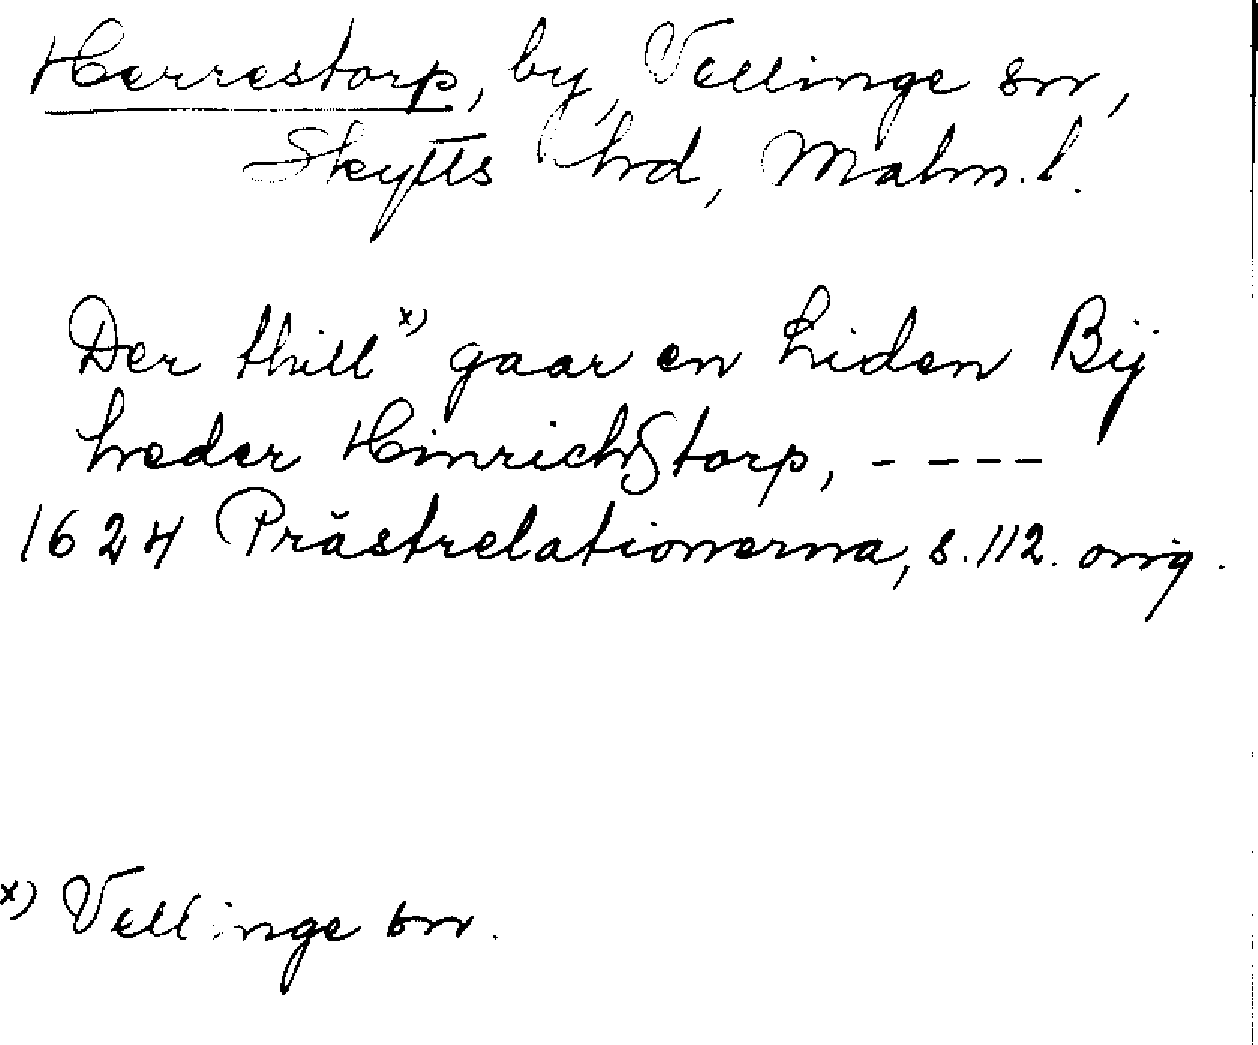 Herrestorp, by, Vellinge sn,
Skytts hd, Malm. l.
Der thill x) gaar en Liden Bij
heder Hinrichstorp, - - - -
1624 Prästrelationerna, s. 112. orig.
x) Vellinge sn.